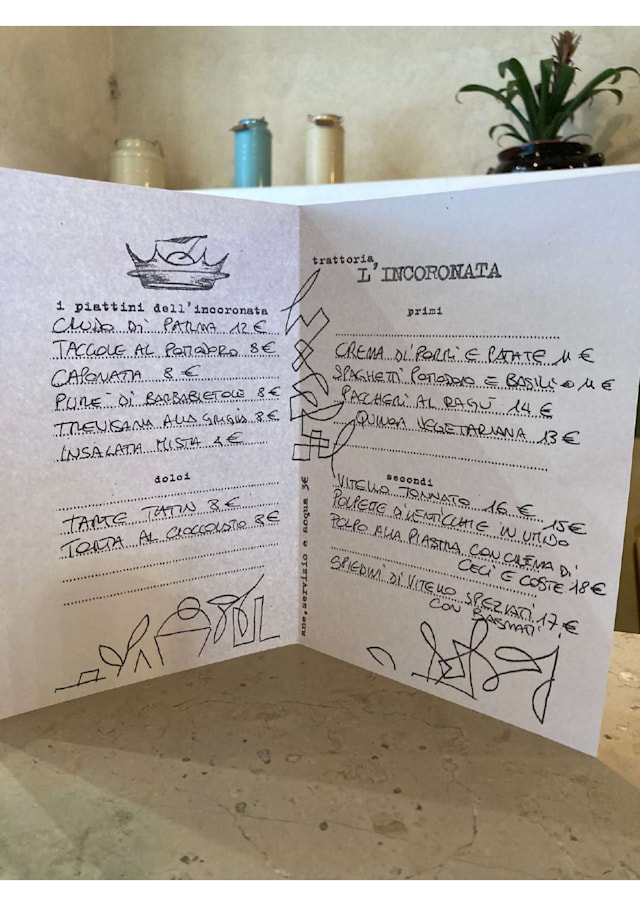 i piattini dell'incoronata
CRUDO DI PARMA 12 €
TACCOLE AL POMODORO 8 €
CAPONATA 8 €
PURE' DI BARBABIETOLE 8 €
TREVISANA ALLA GRIGLIA 8 €
INSALATA MISTA 4 €
dolci
TARTE TATIN 8 €
TORTA AL CIOCCOLATO 8 €
ane, servizio e acqua 3€
trattoria
L'INCORONATA
primi
CREMA DI PORRI E PATATE 11 €
SPAGHETTI POMODORO E BASILICO 11 €
PACCHERI AL RAGÙ 14 €
QUINOA VEGETARIANA 13 €
secondi
VITELLO TONNATO 16 €
POLPETTE DI LENTICCHIE IN UMIDO 15 €
POLPO ALLA PIASTRA CON CREMA DI
CECI E COSTE 18 €
SPIEDINI DI VITELLO SPEZIATI 17 €
CON BASMATI